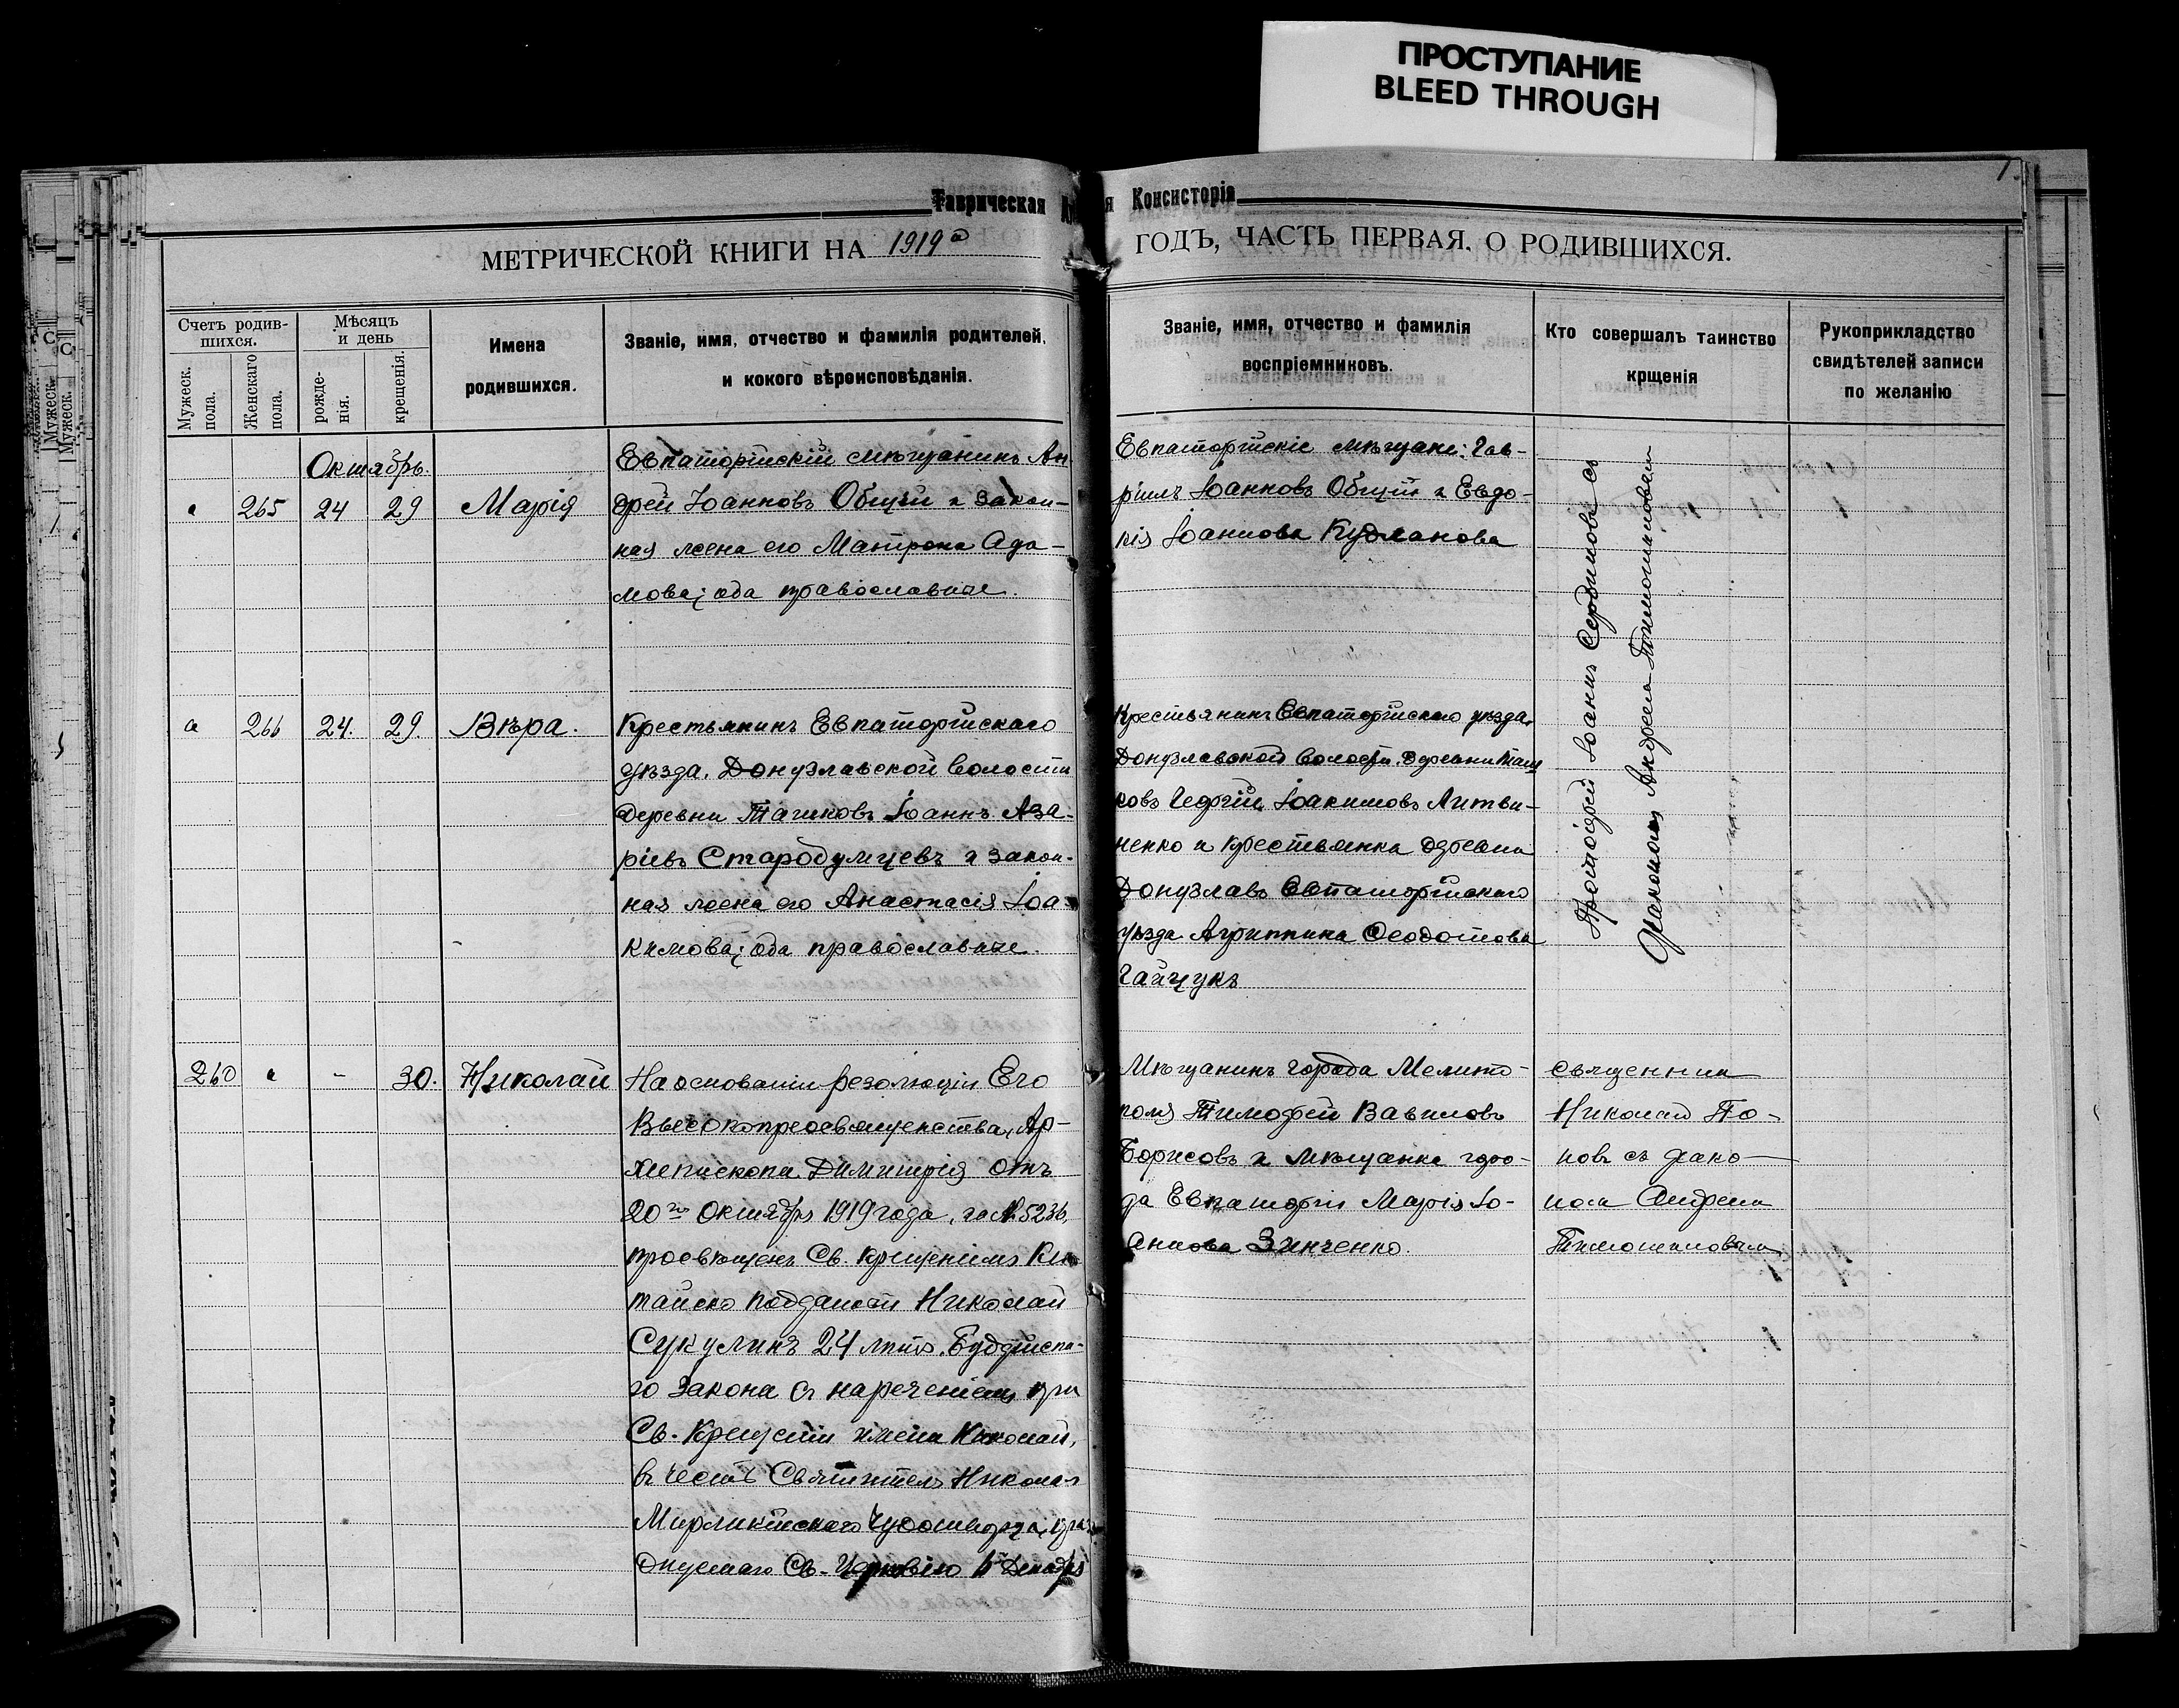 ПРОСТУПАНИЕ
BLEED THROUGH
Таврическая
я Консисторія
МЕТРИЧЕСКОЙ КНИГИ НА 1919
ГОДЪ, ЧАСТЬ ПЕРВАЯ, О РОДИВШИХСЯ.
Счетъ родив-
шихся.
Мужеск.
пола.
Женскаго
пола.
Мѣсяцъ
и день
рожде-
нія.
крещенія.
Имена
родившихся.
Званіе, имя, отчество и фамилія родителей,
и кокого вѣроисповѣданія.
Званіе, имя, отчество и фамилія
воспріемниковъ.
Кто совершалъ таинство
крщенія
Рукоприкладство
свидѣтелей записи
по желанію
Октябрь.
265 24 29 Марія
Евпаторійскій мѣщанинъ Ан-
дрей Іоанновъ Общій и закон-
ная жена его Матрона Ада-
мова; оба православные.
Евпаторійскіе мѣщане: Гав-
ріилъ Іоанновъ Общій и Евдо-
кія Іоаннова Кудланова
Протоіерей Іоаннъ Сердобиновъ съ
діакономъ Андреемъ Тимошиновымъ
266 24. 29. Вѣра.
Крестьянинъ Евпаторійскаго
уѣзда, Донузлавской волости
деревни Ташковъ Іоаннъ Аза-
ріевъ Стародумцевъ и закон-
ная жена его Анастасія Іоа-
кимова; оба православные.
Крестьянинъ Евпаторійскаго уѣзда,
Донузлавской волости, деревни Таш
ковъ Георгій Іоакимовъ Литви-
ненко и крестьянка деревни
Донузлавъ Евпаторійскаго
уѣзда Агриппина Ѳеодотова
Гайчукъ
260 - 30. Николай
На основаніи резолюціи Его
Высокопреосвященства, Ар-
хіепископа Димитрія отъ
20го Октября 1919 года, за № 5236,
просвѣщенъ Св. крещеніемъ Ки
тайско подданой Николай
Сукулинъ 24 лѣтъ, Буддійска-
го Закона съ нареченіемъ при
Св. Крещеніи имени Николай,
въ честь Святителя Николая
Мирликійскаго Чудотворца, пра
зднуемаго Св. Церковію 6 Декабря
Мѣщанинъ города Мелито-
поля Тимофей Вавиловъ
Борисовъ и мѣщанка горо-
да Евпаторіи Марія Іо-
аннова Зинченко.
Священник
Николай По-
повъ съ діако-
номъ Андреем
Тимошиновым